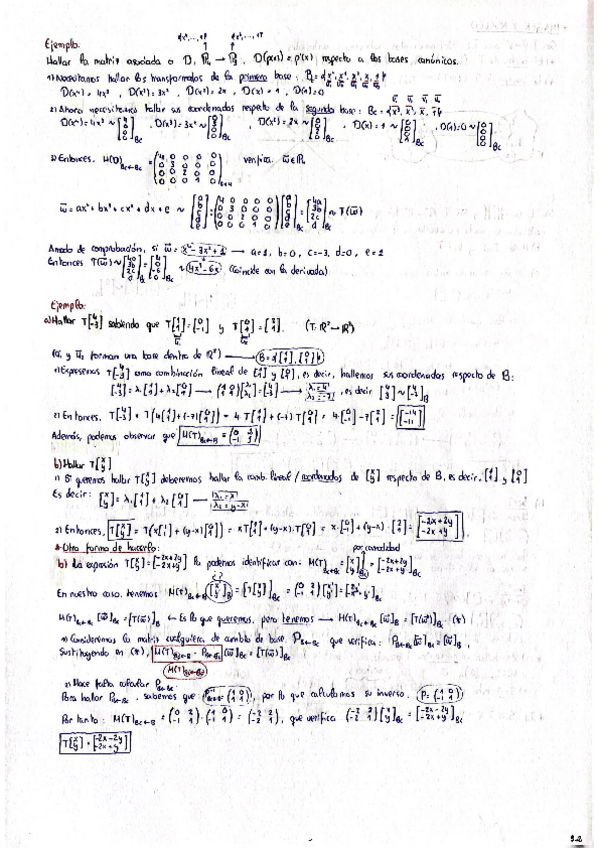 Ejemplo:
Hallar la matriz asociada a D, P₄ → P₃, D(p(x)) = p'(x) respecto a las bases canónicas.
1) Necesitamos hallar los transformados de la primera base: P₄ = {x⁴, x³, x², x, 1}
D(x⁴) = 4x³, D(x³) = 3x², D(x²) = 2x, D(x) = 1, D(1) = 0
2) Ahora necesitamos hallar sus coordenadas respecto de la segunda base: Bc = {x³, x², x, 1}
D(x⁴) = 4x³ ~ [4 0 0 0]Bc, D(x³) = 3x² ~ [0 3 0 0]Bc, D(x²) = 2x ~ [0 0 2 0]Bc, D(x) = 1 ~ [0 0 0 1]Bc, D(1) = 0 ~ [0 0 0 0]Bc
3) Entonces, M(D)Bc←Bc = (4 0 0 0 0 / 0 3 0 0 0 / 0 0 2 0 0 / 0 0 0 1 0) verifica. w̄ ∈ P₄
w̄ = ax⁴ + bx³ + cx² + dx + e ~ [a b c d e] = (4 0 0 0 0 / 0 3 0 0 0 / 0 0 2 0 0 / 0 0 0 1 0) [a b c d e]Bc = [4a 3b 2c d]Bc ~ T(w̄)
A modo de comprobación, si w̄ = x⁴ - 3x² + 2 → a=1, b=0, c=-3, d=0, e=2
Entonces T(w̄) ~ [4a 3b 2c d]Bc = [4 0 -6 0]Bc ~ 4x³ - 6x (coincide con la derivada)
Ejemplo:
a) Hallar T[4 -3] sabiendo que T[1 1] = [0 -1] y T[0 1] = [2 1]. (T: R² → R²)
(ū₁ y ū₂ forman una base dentro de R²) → B = {[1 1], [0 1]}
1) Expresemos T[4 -3] como combinación lineal de [1 1] y [0 1], es decir, hallemos sus coordenadas respecto de B:
[4 -3] = λ₁[1 1] + λ₂[0 1] → (1 0 / 1 1)[λ₁ λ₂] = [4 -3] → λ₁ = 4 λ₂ = -7, es decir [4 -3] ~ [4 -7]B
2) Entonces, T[4 -3] = T(4[1 1] + (-7)[0 1]) = 4 T[1 1] + (-7) T[0 1] = 4[0 -1] - 7[2 1] = [-14 -11]
Además, podemos observar que M(T)Bc←B = (0 2 / -1 1)
b) Hallar T[x y]
1) Si queremos hallar T[x y] deberemos hallar la comb. lineal / coordenadas de [x y] respecto de B, es decir, [1 1] y [0 1]
Es decir: [x y] = λ₁[1 1] + λ₂[0 1] → λ₁ = x λ₂ = y-x
2) Entonces, T[x y] = T(x[1 1] + (y-x)[0 1]) = xT[1 1] + (y-x)·T[0 1] = x·[0 -1] + (y-x)·[2 1] = [-2x+2y -2x+y]
* Otra forma de hacerlo:
por comodidad
b) La expresión T[x y] = [-2x+2y -2x+y] la podemos identificar con: M(T)Bc←Bc = [x y]Bc = [-2x+2y -2x+y]Bc
¿?
En nuestro caso, tenemos M(T)Bc←B [x y]B = [T[x y]]Bc
M(T)Bc←Bc [w̄]Bc = [T(w̄)]Bc ← Es lo que queremos, pero tenemos → M(T)Bc←B [w̄]B = [T(w̄)]Bc (*)
1) Consideremos la matriz cualquiera de cambio de base, PB←Bc que verifica: PB←Bc [w̄]Bc = [w̄]B,
sustituyendo en (*), M(T)Bc←B · PB←Bc [w̄]Bc = [T(w̄)]Bc
M(T)Bc←Bc
2) Hace falta calcular PB←Bc.
Para hallar PB←Bc, sabemos que PBc←B = (1 0 / 1 1), por lo que calculamos su inversa. P = (1 0 / -1 1)
Por tanto: M(T)Bc←B = (0 2 / -1 1)·(1 0 / -1 1) = (-2 2 / -2 1), que verifica (-2 2 / -2 1)[x y]Bc = [-2x-2y -2x+y]Bc
T[x y] = [-2x-2y -2x+y]